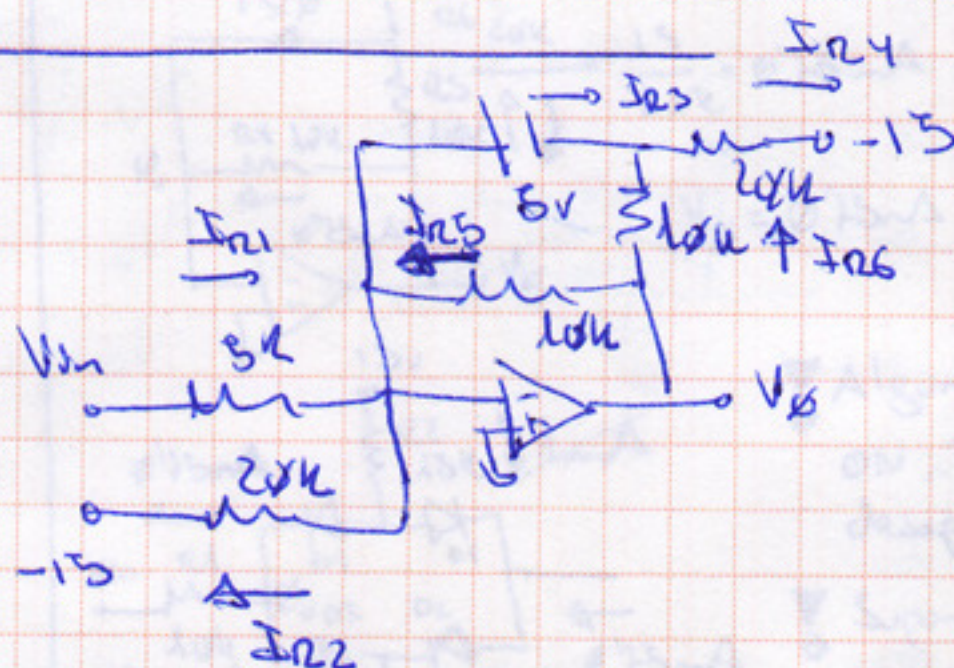 IR4
IR3
-15
5V
20K
10K
IR6
IR5
IR1
10K
Vin
5K
-
+
Vø
20K
-15
IR2